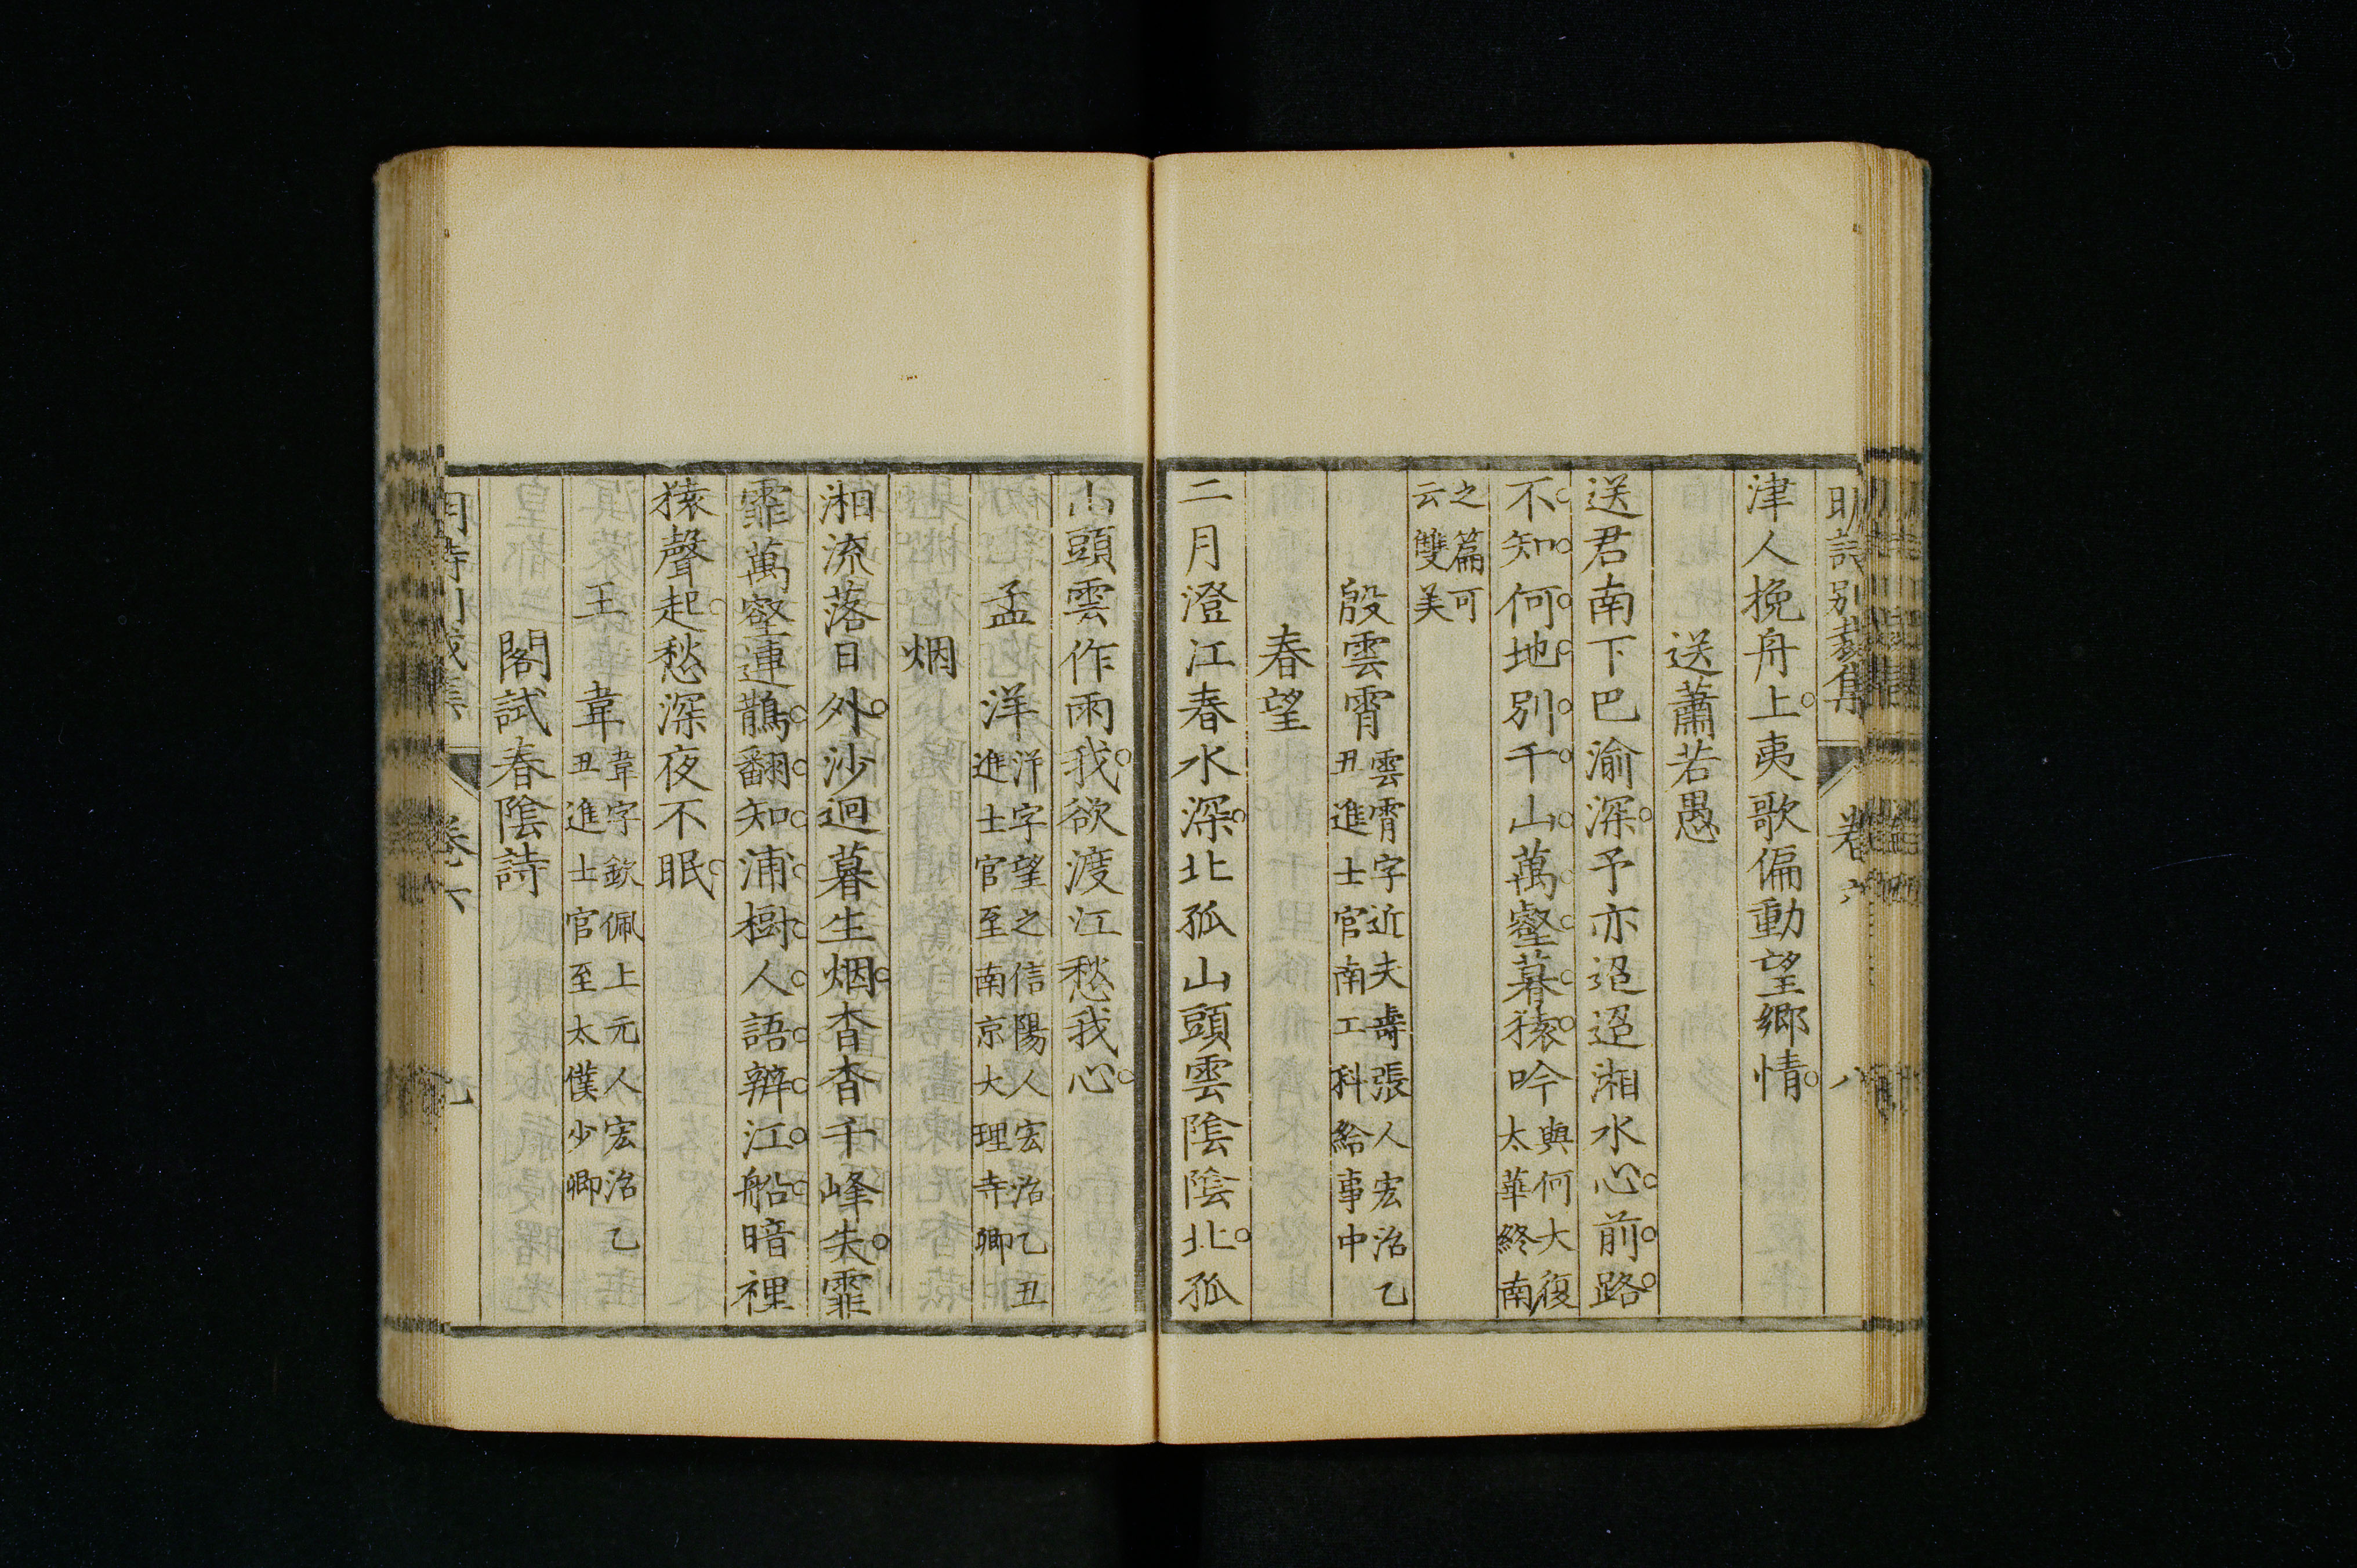 明詩別裁集 卷六 八
津人挽舟上夷歌偏動望鄉情
送蕭若愚
送君南下巴渝深予亦迢迢湘水心前路
不知何地別千山萬壑暮猿吟與何大復太華終南
之篇可云雙美
殷雲霄雲霄字近夫壽張人宏治乙丑進士官南工科給事中
春望
二月澄江春水深北孤山頭雲陰陰北孤
山頭雲作雨我欲渡江愁我心
孟洋洋字望之信陽人宏治乙丑進士官至南京大理寺卿
烟
湘流落日外沙迥暮生烟杳杳千峰失霏
霏萬壑連鵲翻知浦樹人語辨江船暗裡
猿聲起愁深夜不眠
王韋韋字欽佩上元人宏治乙丑進士官至太僕少卿
閣試春陰詩
卷六 九